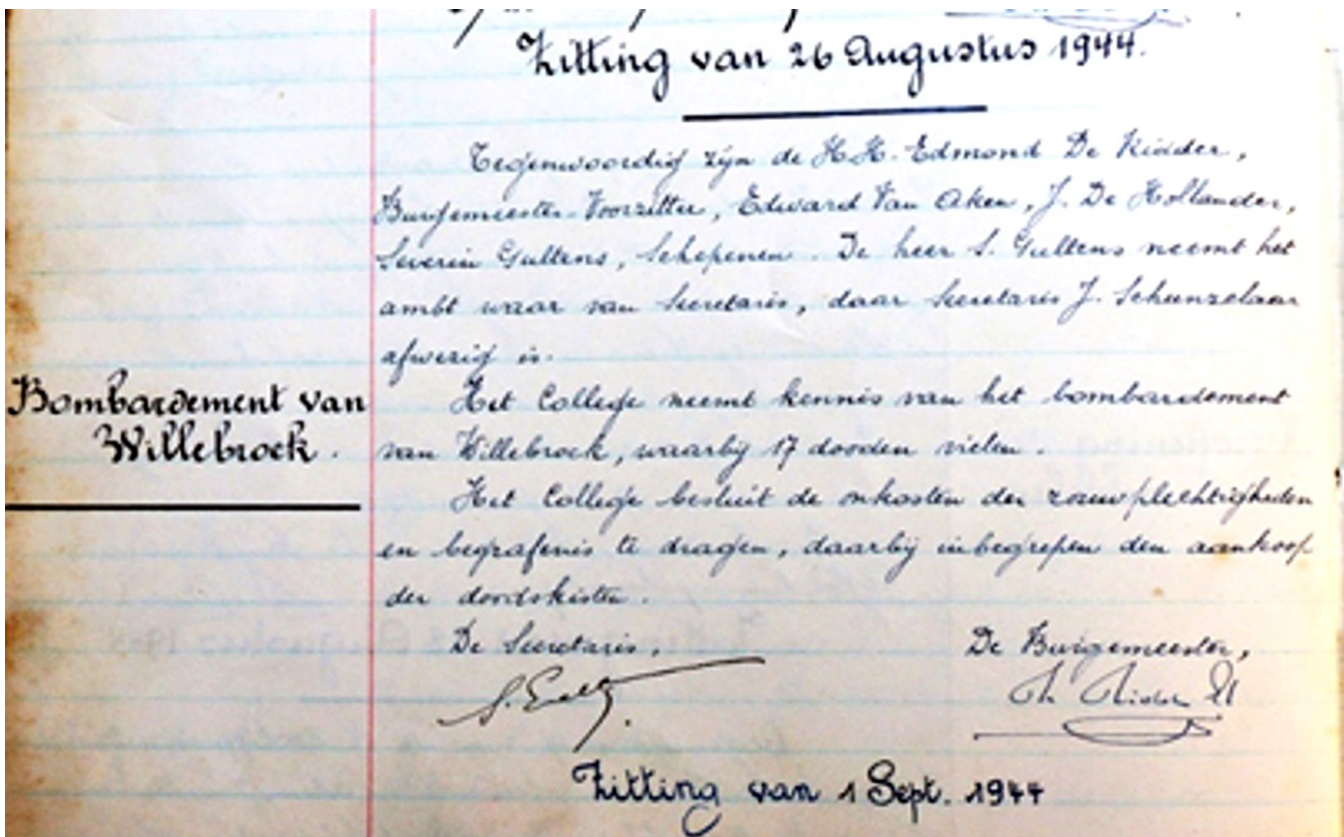 Zitting van 26 Augustus 1944.
Tegenwoordig zijn de H.H. Edmond De Ridder,
Burgemeester-Voorzitter, Edward Van Aken, J. De Hollander,
Severin Gultens, Schepenen. De heer S. Gultens neemt het
ambt waar van Secretaris, daar Secretaris J. Schunzelaar
afwezig is.
Bombardement van
Willebroek.
Het College neemt kennis van het bombardement
van Willebroek, waarbij 17 dooden vielen.
Het College besluit de onkosten der rouwplechtigheden
en begrafenis te dragen, daarbij inbegrepen den aankoop
der doodskisten.
De Secretaris,
De Burgemeester,
Zitting van 1 Sept. 1944